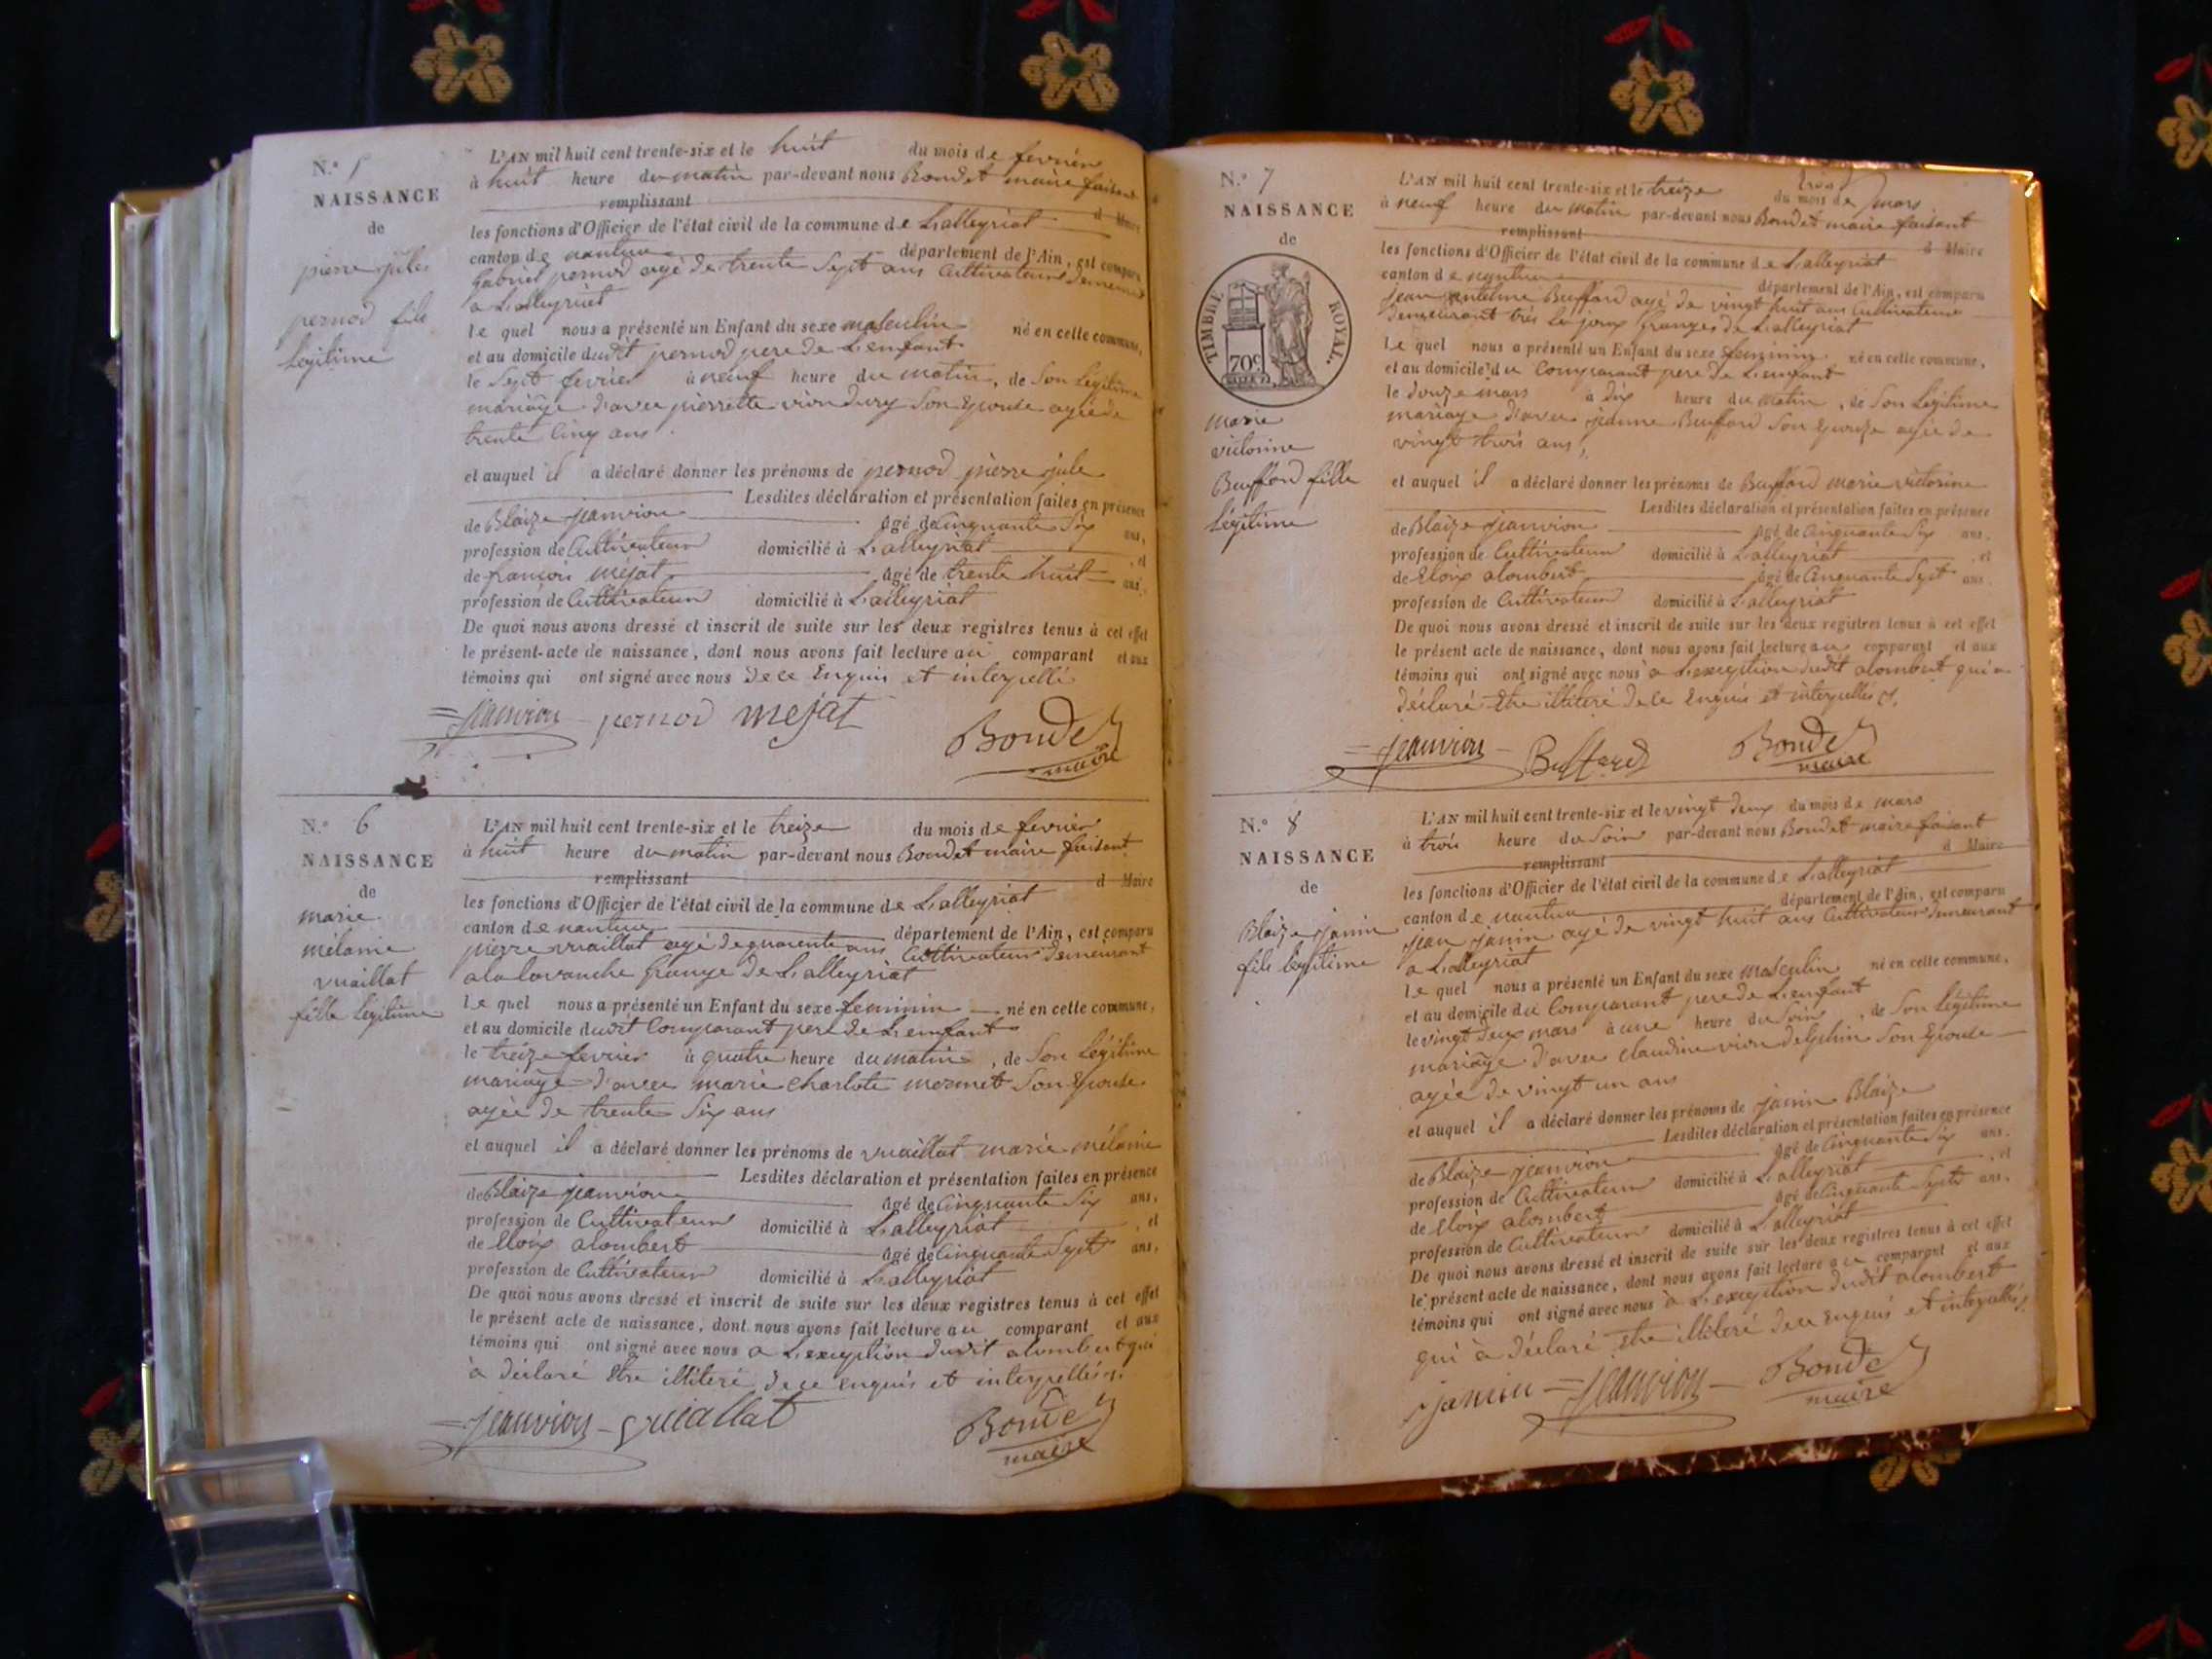 N.° 5
NAISSANCE
de
pierre jules
pernod fils
légitime
L'AN mil huit cent trente-six et le huit du mois de fevrier
à huit heure du matin par-devant nous Bondet maire faisant
remplissant d Maire
les fonctions d'Officier de l'état civil de la commune de Lalleyriat
canton de nantua département de l'Ain, est comparu
Gabriel pernod agé de trente sept ans Cultivateur demeurant
a Lalleyriat
le quel nous a présenté un Enfant du sexe masculin né en cette commune,
et au domicile dudit pernod pere de L'enfant
le Sept fevrier à neuf heure du matin, de Son Légitime
mariage d'avec pierrette vion dury Son Epouse agée de
trente Cinq ans
et auquel il a déclaré donner les prénoms de pernod pierre jule
Lesdites déclaration et présentation faites en présence
de Blaize jeanvion âgé de Cinquante Six ans,
profession de Cultivateur domicilié à Lalleyriat , et
de francois mejat âgé de trente huit ans,
profession de Cultivateur domicilié à Lalleyriat
De quoi nous avons dressé et inscrit de suite sur les deux registres tenus à cet effet
le présent-acte de naissance, dont nous avons fait lecture au comparant et aux
témoins qui ont signé avec nous De ce Enquis et interpellé
jeanvion pernod mejat Bondet
maire
N.° 6
NAISSANCE
de
marie
mélanie
vuaillat
fille légitime
L'AN mil huit cent trente-six et le treize du mois de fevrier
à huit heure du matin par-devant nous Bondet maire faisant
remplissant d Maire
les fonctions d'Officier de l'état civil de la commune de Lalleyriat
canton de nantua département de l'Ain, est comparu
pierre vuaillat agé de quarente ans Cultivateur demeurant
a la lavanche Grange de Lalleyriat
le quel nous a présenté un Enfant du sexe feminin né en cette commune,
et au domicile dudit Comparant pere de L'enfant
le treize fevrier à quatre heure du matin, de Son Légitime
mariage d'avec marie charlote mermet Son Epouse
agée de trente Six ans
et auquel il a déclaré donner les prénoms de vuaillat marie mélanie
Lesdites déclaration et présentation faites en présence
de Blaize jeanvion âgé de Cinquante Six ans,
profession de Cultivateur domicilié à Lalleyriat , et
de Eloix alombert âgé de Cinquante Sept ans,
profession de Cultivateur domicilié à Lalleyriat
De quoi nous avons dressé et inscrit de suite sur les deux registres tenus à cet effet
le présent acte de naissance, dont nous avons fait lecture au comparant et aux
témoins qui ont signé avec nous a L'exception dudit alombert qui
à déclaré Etre illiteré de ce enquis et interpellés
jeanvion vuiallat Bondet
maire
N.° 7
NAISSANCE
de
TIMBRE ROYAL.
70c
marie
victorine
Buffard fille
légitime
L'AN mil huit cent trente-six et le treize du mois de mars
à neuf heure du matin par-devant nous Bondet maire faisant
remplissant d Maire
les fonctions d'Officier de l'état civil de la commune de Lalleyriat
canton de nantua département de l'Ain, est comparu
jean antelme Buffard agé de vingt huit ans Cultivateur
demeurant Granges de Lalleyriat
Le quel nous a présenté un Enfant du sexe feminin né en cette commune,
et au domicile du Comparant pere de L'enfant
le douze mars à dix heure du matin, de Son Légitime
mariage d'avec jeanne Buffard Son Epouze agée de
vingt trois ans,
et auquel il a déclaré donner les prénoms de Buffard marie victorine
Lesdites déclaration et présentation faites en présence
de Blaize jeanvion âgé de Cinquante Six ans,
profession de Cultivateur domicilié à Lalleyriat , et
de Eloix alombert âgé de Cinquante Sept ans.
profession de Cultivateur domicilié à Lalleyriat
De quoi nous avons dressé et inscrit de suite sur les deux registres tenus à cet effet
le présent acte de naissance, dont nous avons fait lecture au comparant et aux
témoins qui ont signé avec nous à L'exception dudit alombert qui a
déclaré Etre illiteré de ce Enquis et interpellés
jeanvion Buffard Bondet
maire
N.° 8
NAISSANCE
de
Blaize janin
fils legitime
L'AN mil huit cent trente-six et le vingt deux du mois de mars
à trois heure du Soir par-devant nous Bondet maire faisant
remplissant d Maire
les fonctions d'Officier de l'état civil de la commune de Lalleyriat
canton de nantua département de l'Ain, est comparu
jean janin agé de vingt huit ans Cultivateur demeurant
a Lalleyriat
le quel nous a présenté un Enfant du sexe masculin né en cette commune,
et au domicile du Comparant pere de L'enfant
le vingt deux mars à une heure du Soir, de Son légitime
mariage d'avec claudine vion delphin Son Epouse
agée de vingt un ans
et auquel il a déclaré donner les prénoms de janin Blaize
Lesdites déclaration et présentation faites en présence
de Blaize jeanvion âgé de Cinquante Six ans.
profession de Cultivateur domicilié à Lalleyriat , et
de Eloix alombert âgé de Cinquante Sept ans.
profession de Cultivateur domicilié à Lalleyriat
De quoi nous avons dressé et inscrit de suite sur les deux registres tenus à cet effet
le présent acte de naissance, dont nous avons fait lecture au comparant et aux
témoins qui ont signé avec nous à L'exception dudit alombert
qui à déclaré Etre illiteré de ce enquis et interpellés
janin jeanvion Bondet
maire